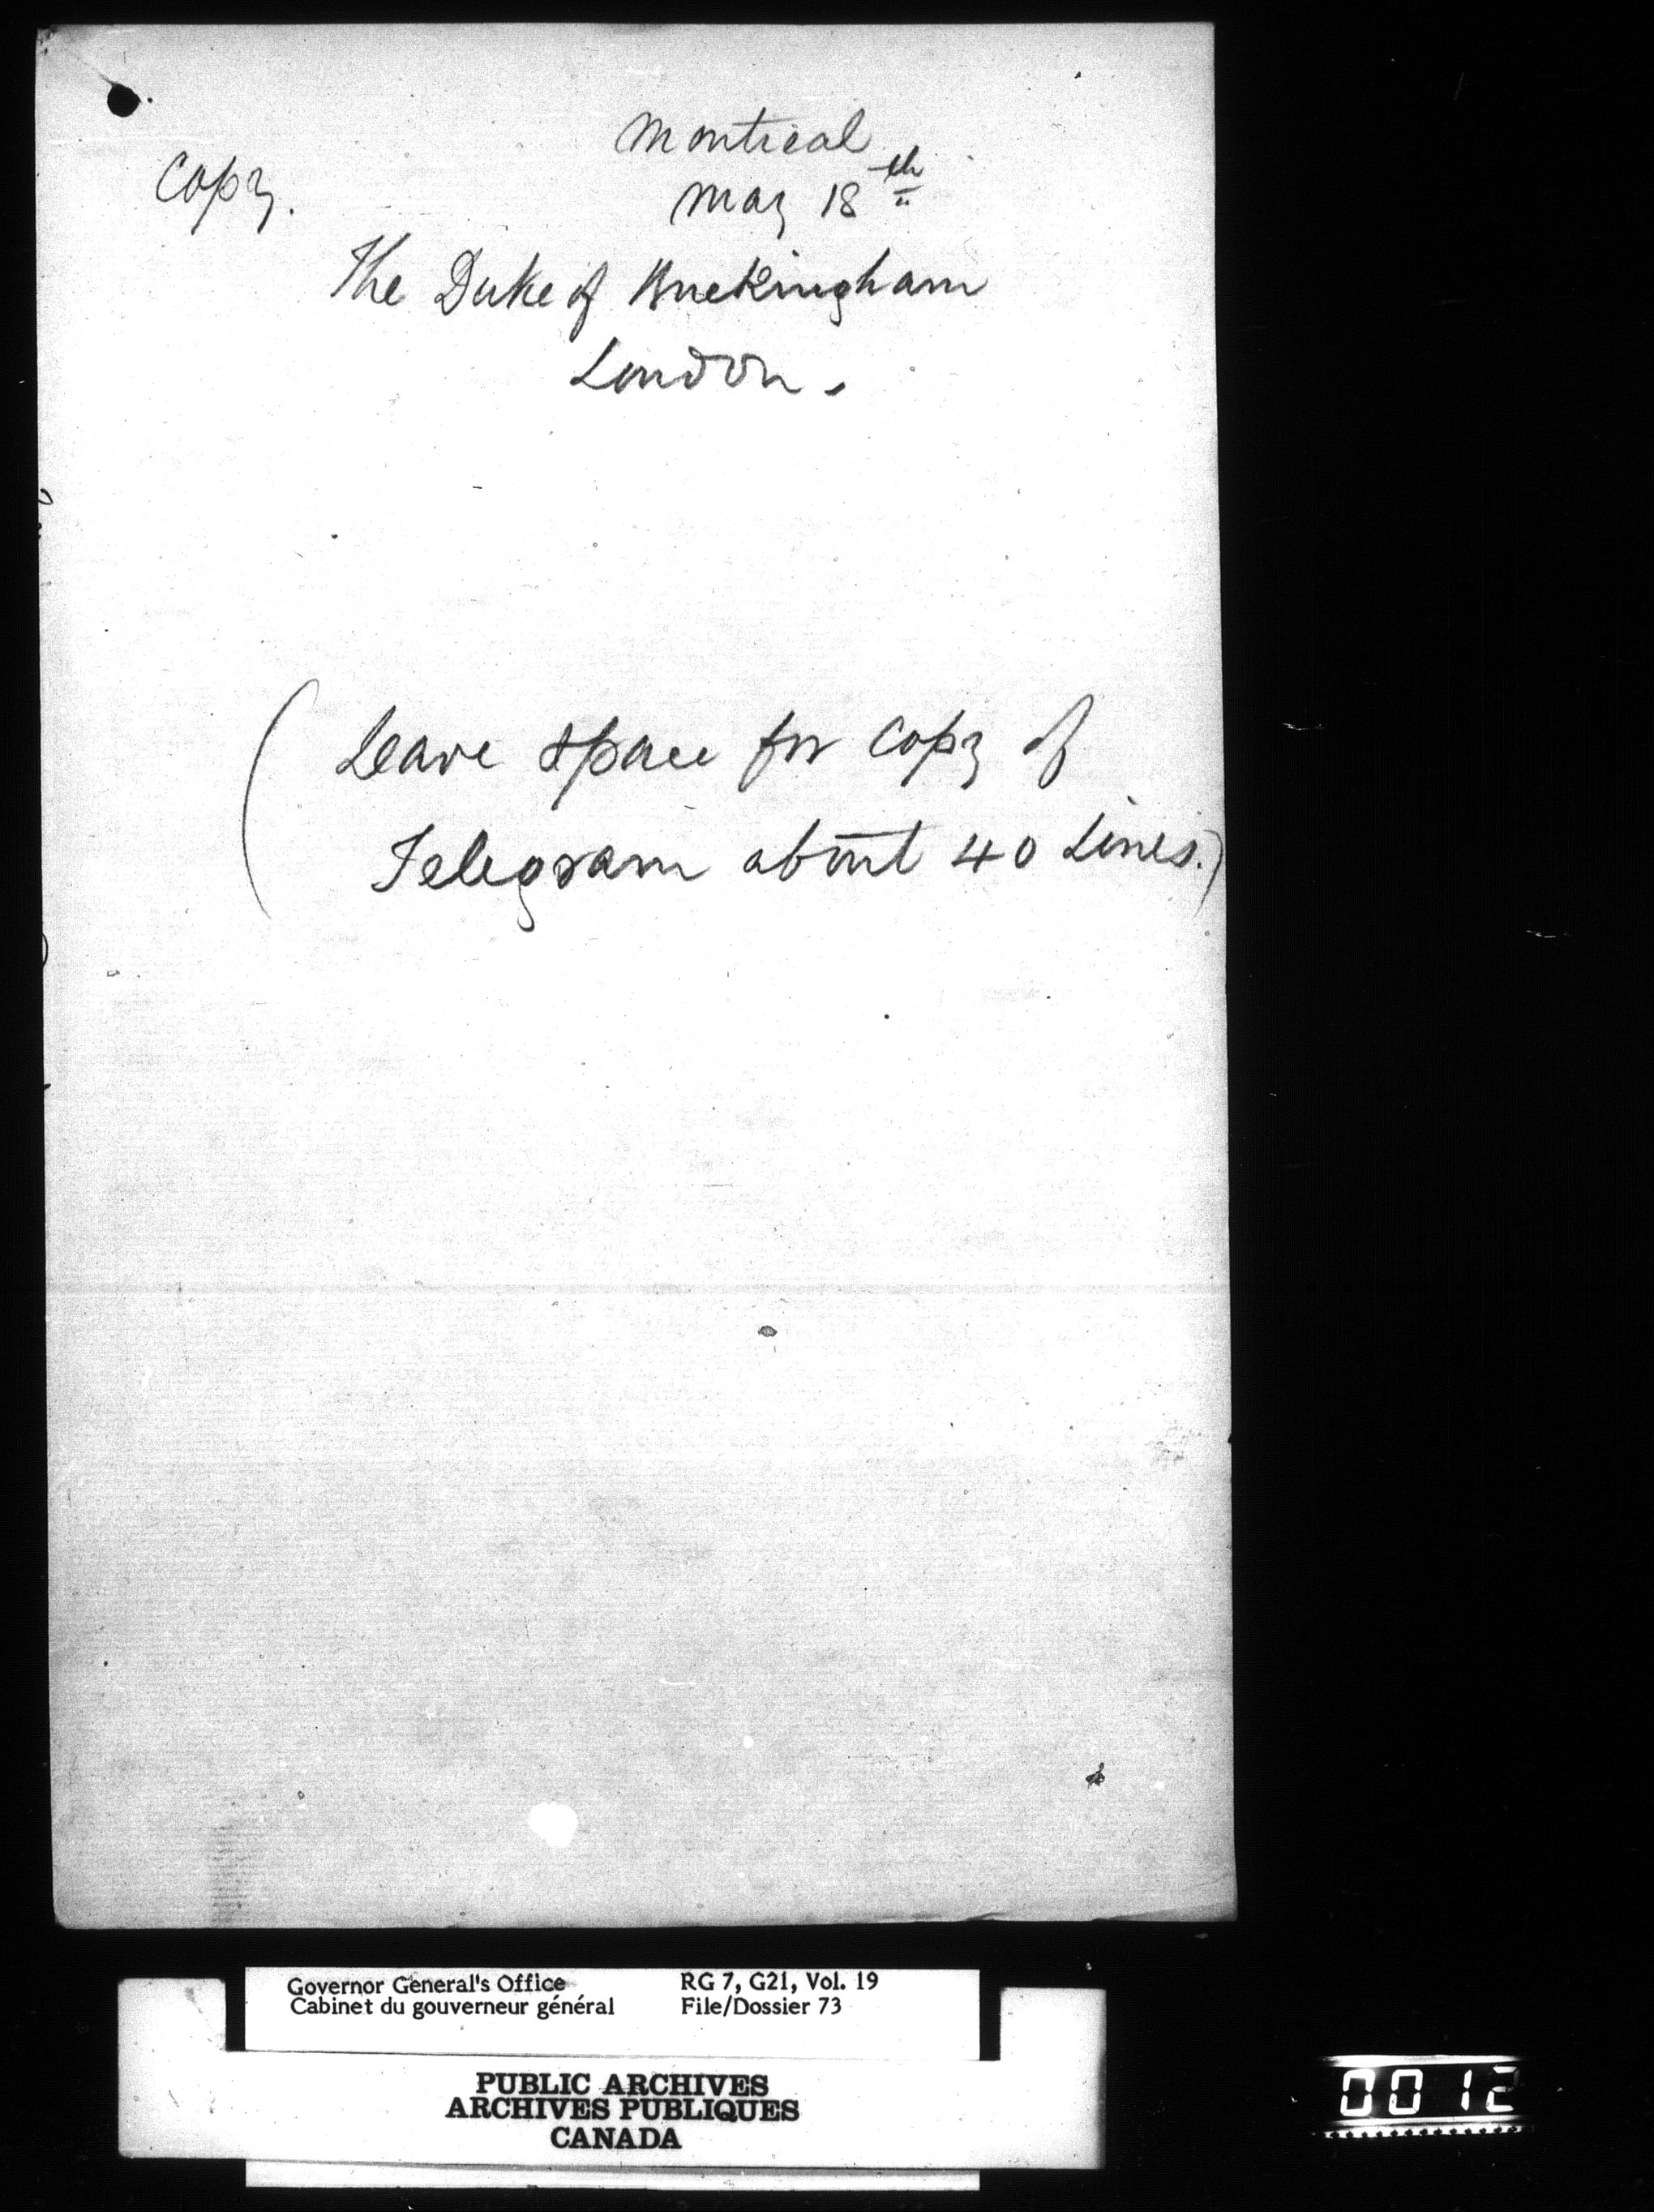 Montreal
Copy.
May 18th
The Duke of Buckingham
London.
(Leave space for copy of
Telegram about 40 Lines.)
Governor General's Office RG 7, G21, Vol. 19
Cabinet du gouverneur général File/Dossier 73
PUBLIC ARCHIVES
ARCHIVES PUBLIQUES
CANADA
0012